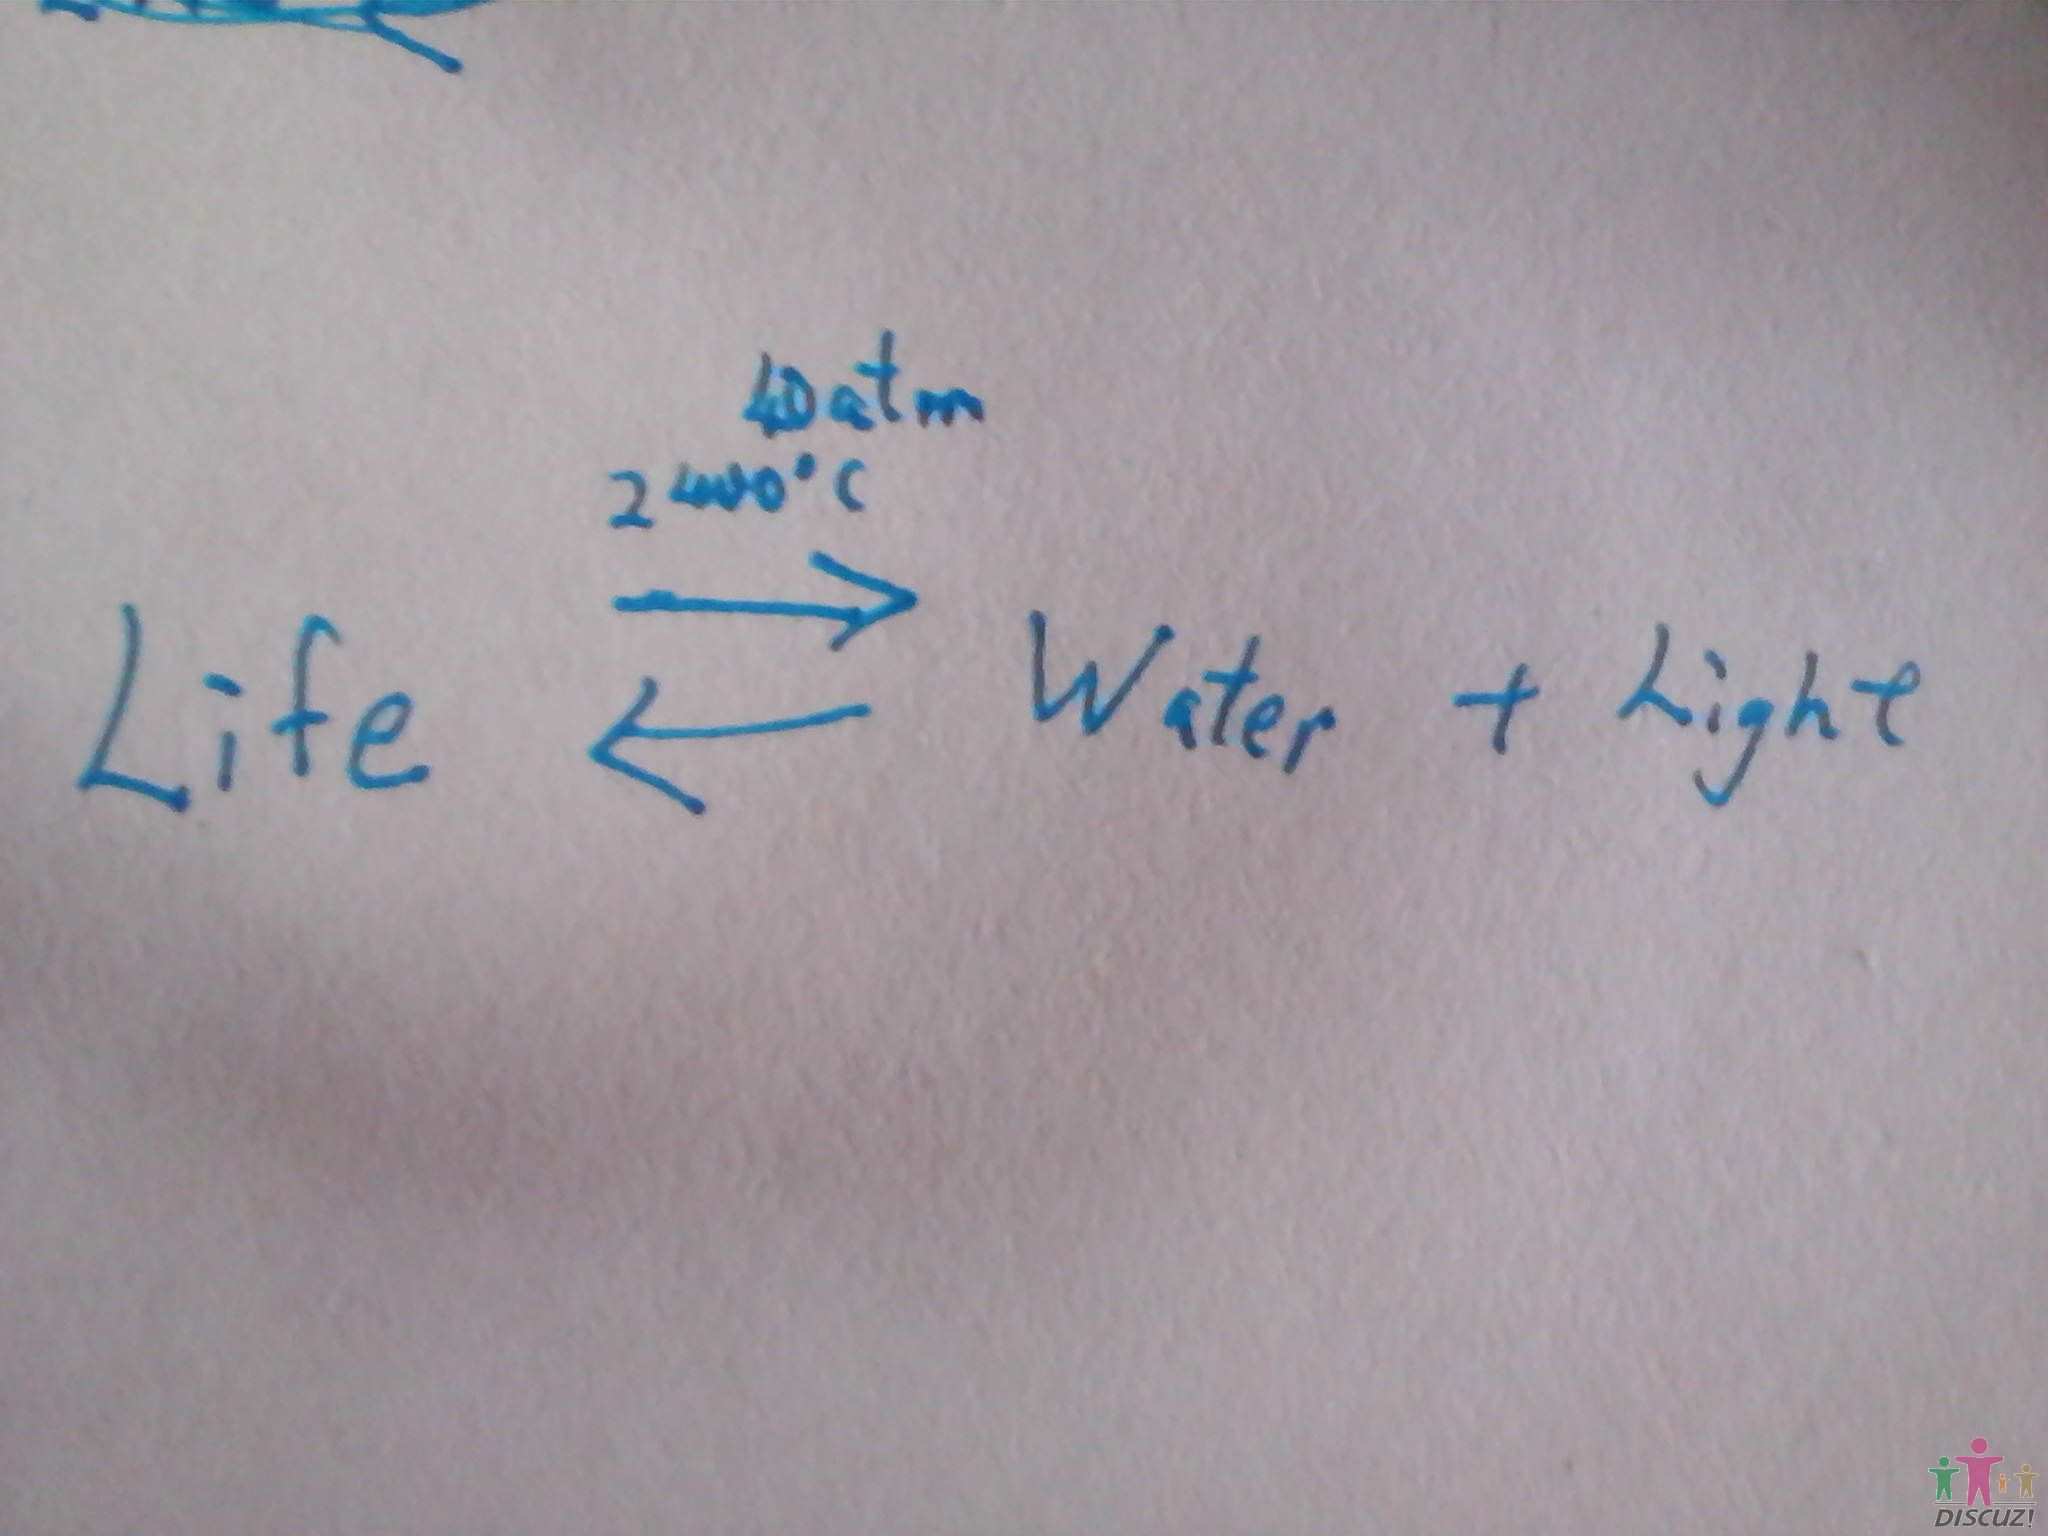 40atm
2400°C
Life → ← Water + Light
DISCUZ!